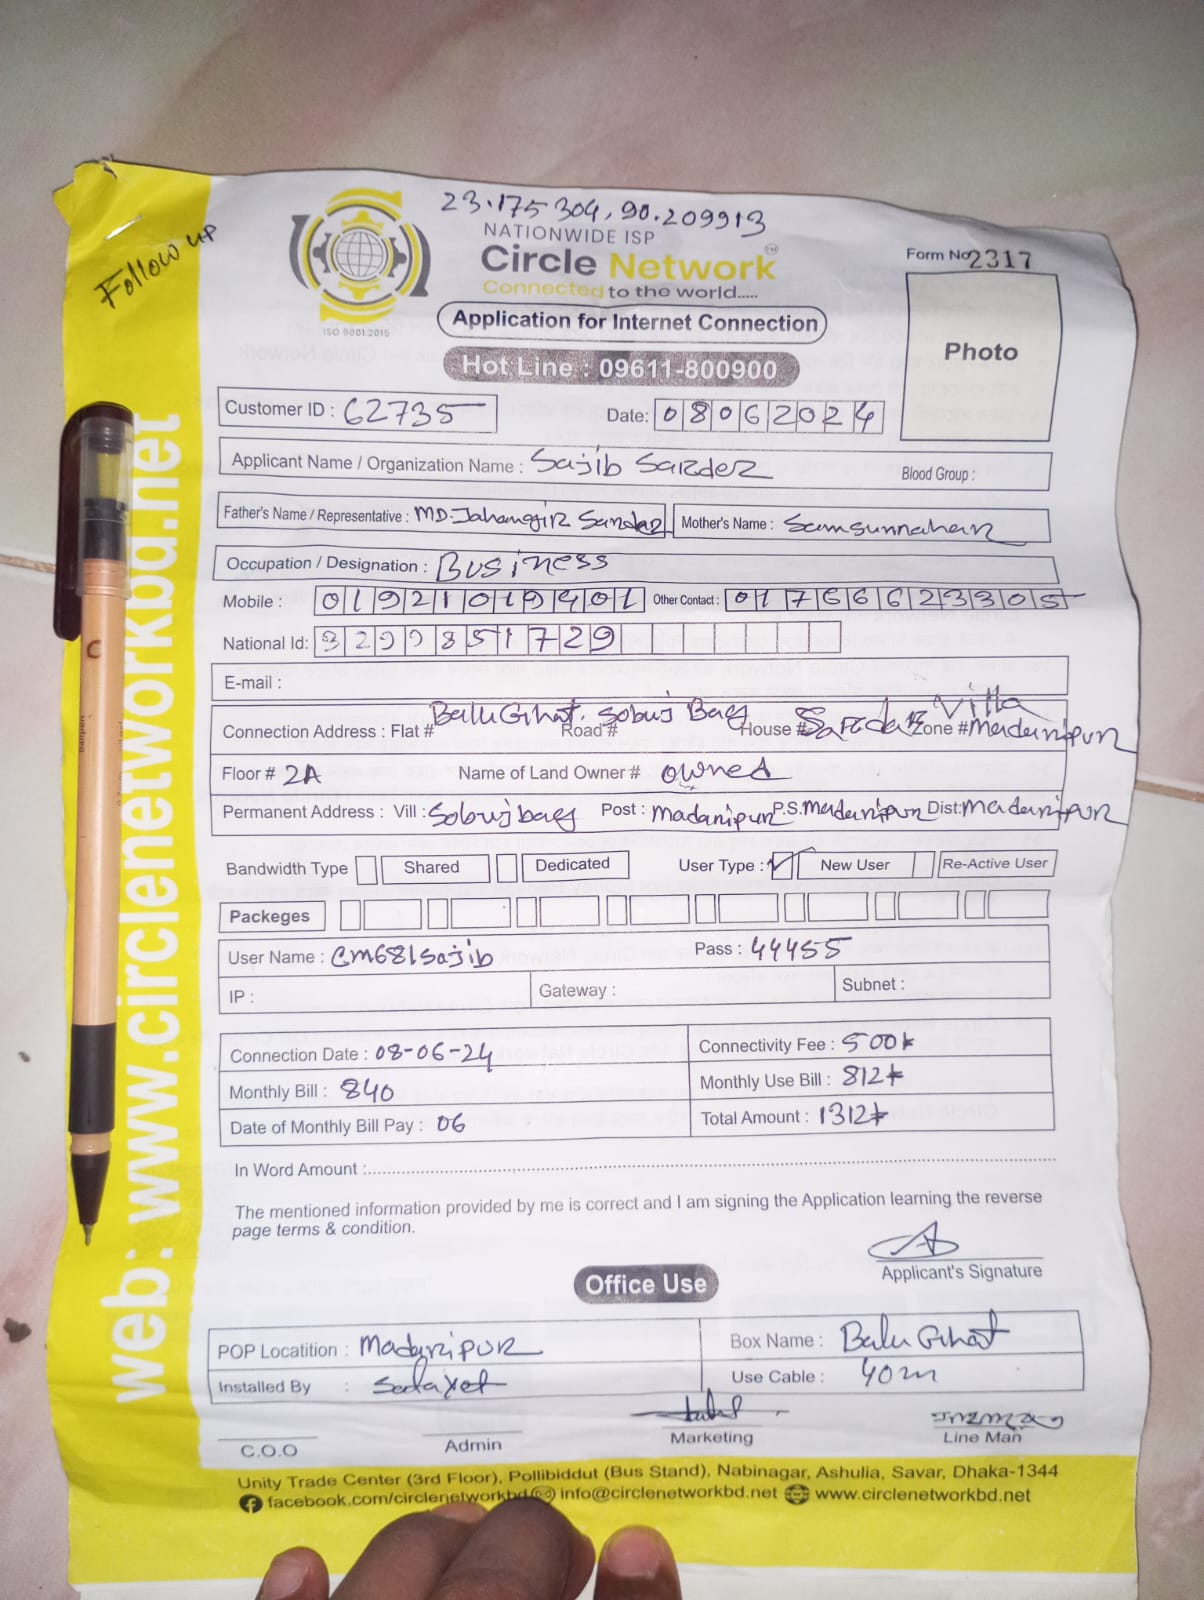 23.175304, 90.209913
Follow up
NATIONWIDE ISP
Circle Network TM
Connected to the world.....
ISO 9001:2015
Form No 2317
Application for Internet Connection
Photo
Hot Line : 09611-800900
Customer ID : 62735
Date: 08062024
Applicant Name / Organization Name : Sajib Sarder
Blood Group :
Father's Name / Representative : MD. Jahangir Sardar
Mother's Name : Samsunnahar
Occupation / Designation : Business
Mobile : 01921019401
Other Contact : 01766623305
National Id: 3299851729
E-mail :
Connection Address : Flat # Balu Ghat, Sobuj Bag Road # House # Sarder Villa Zone # Madaripur
Floor # 2A Name of Land Owner # owned
Permanent Address : Vill : Sobujbag Post : Madaripur P.S. Madaripur Dist: Madaripur
Bandwidth Type Shared Dedicated User Type : New User Re-Active User
Packeges
User Name : CM681Sajib Pass : 44455
IP : Gateway : Subnet :
Connection Date : 08-06-24 Connectivity Fee : 500
Monthly Bill : 840 Monthly Use Bill : 812
Date of Monthly Bill Pay : 06 Total Amount : 1312
In Word Amount :
The mentioned information provided by me is correct and I am signing the Application learning the reverse
page terms & condition.
Applicant's Signature
Office Use
POP Locatition : Madaripur Box Name : Balu Ghat
Installed By : Use Cable : 40m
C.O.O Admin Marketing Line Man
Unity Trade Center (3rd Floor), Pollibiddut (Bus Stand), Nabinagar, Ashulia, Savar, Dhaka-1344
facebook.com/circlenetworkbd info@circlenetworkbd.net www.circlenetworkbd.net
web: www.circlenetworkbd.net